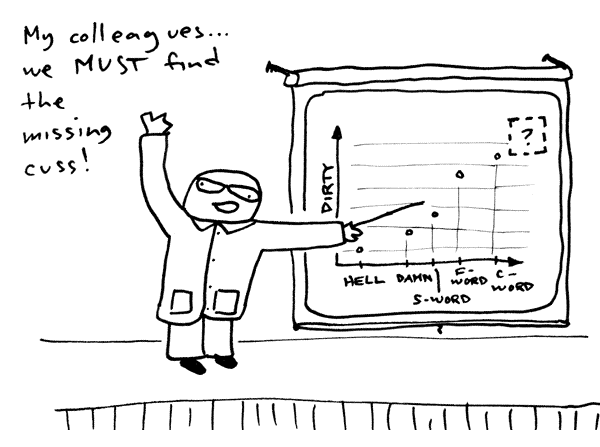 My colleagues...
we MUST find
the
missing
cuss!
?
DIRTY
HELL DAMN F-WORD C-WORD
S-WORD